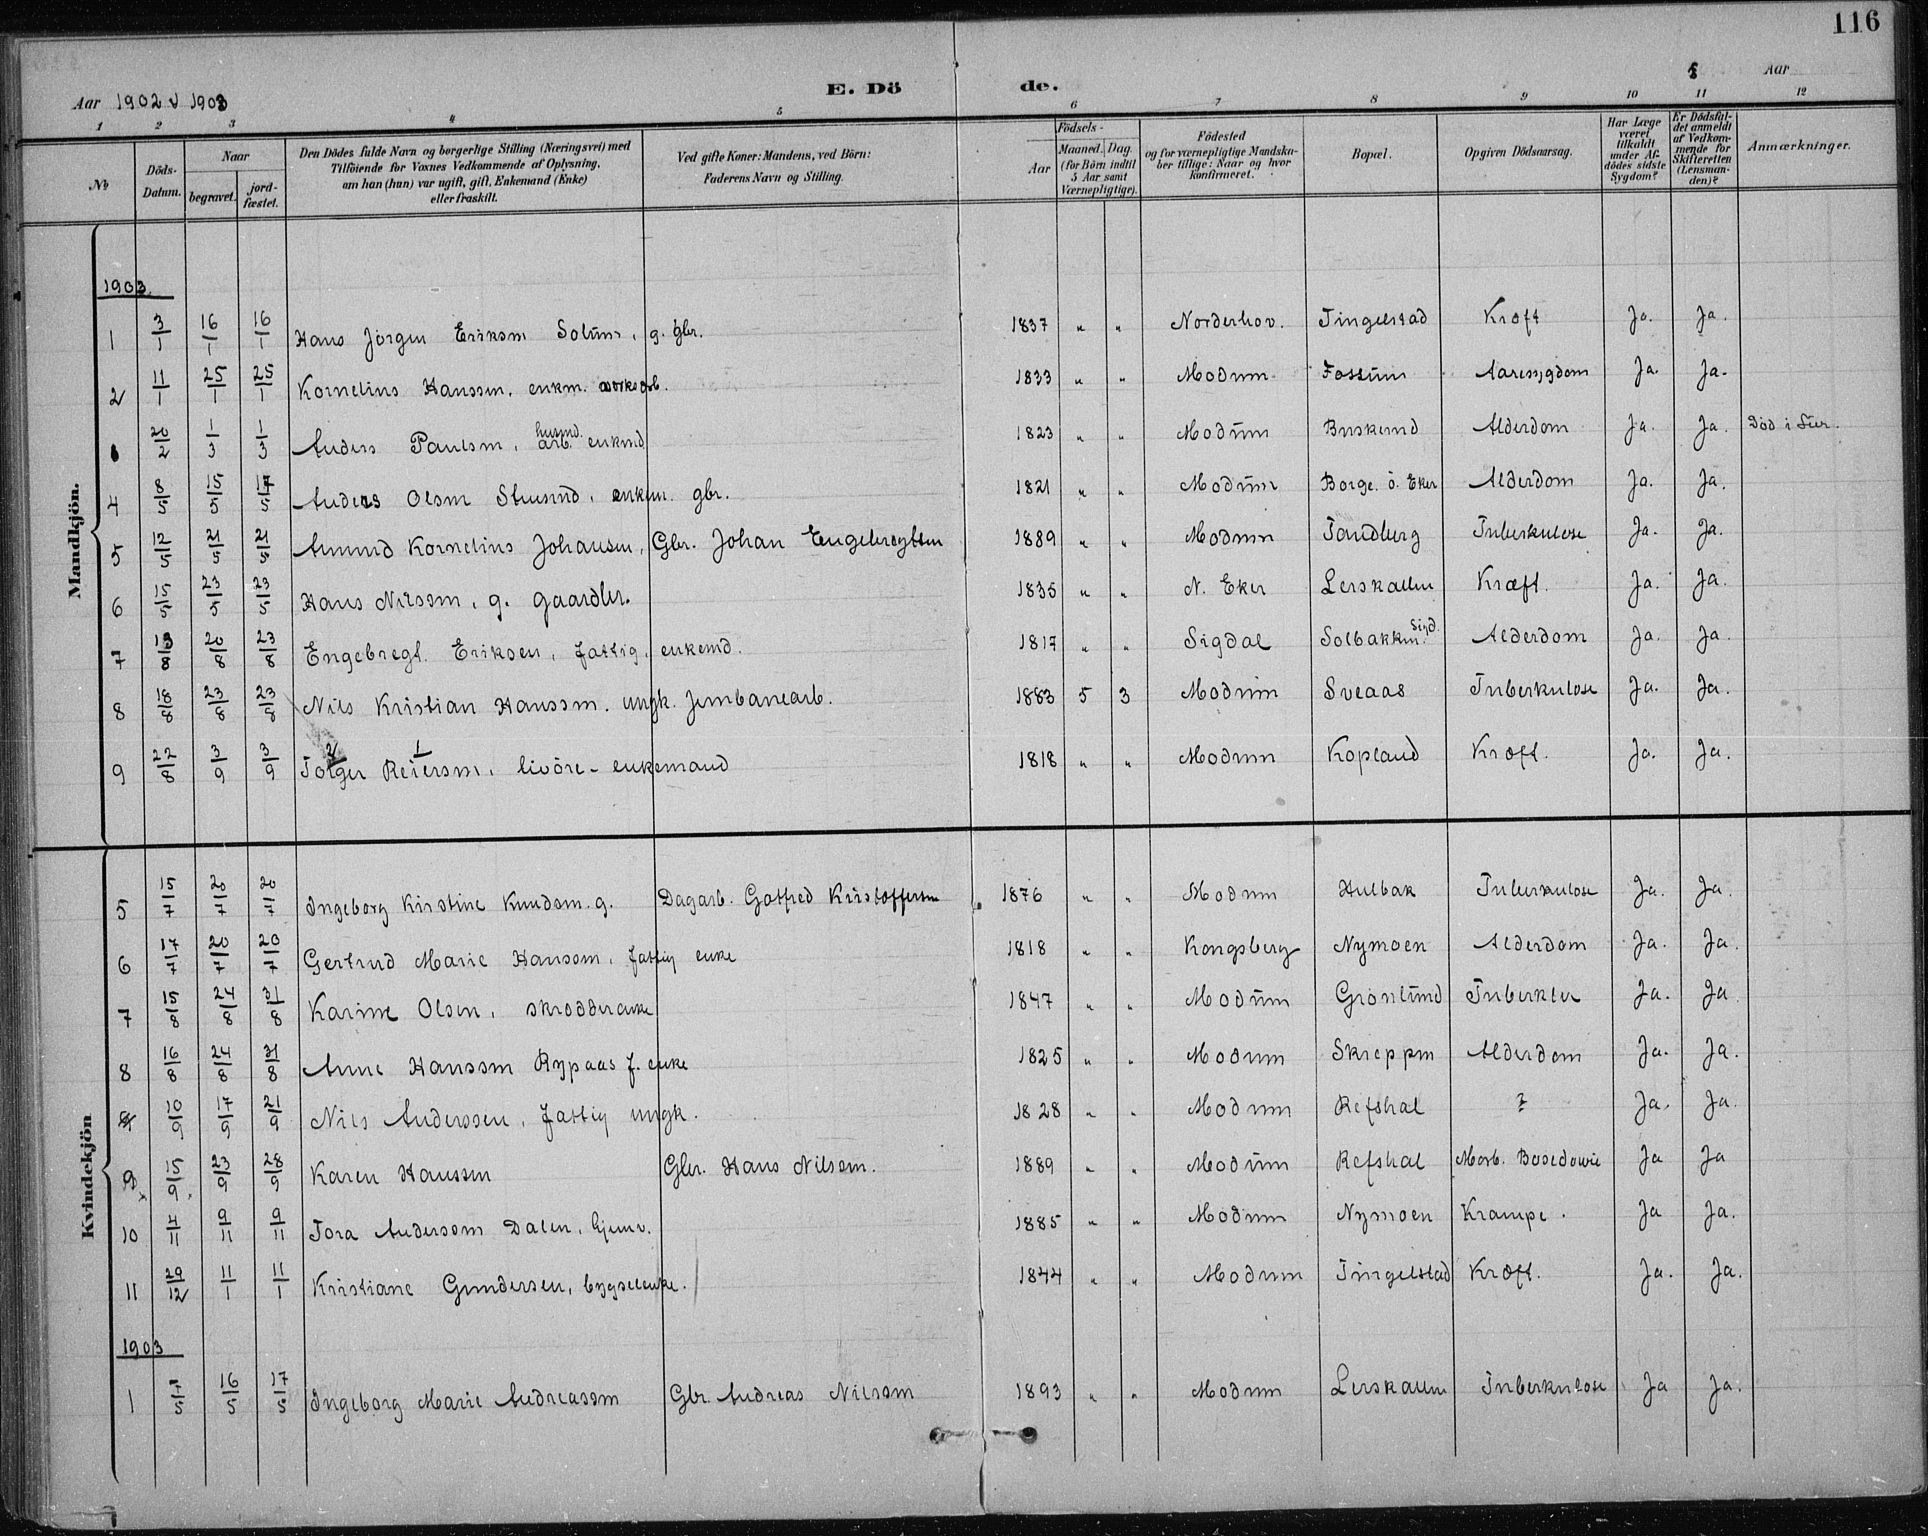 116
Aar 1902 & 1903 E. Dö de. Aar
1 2 3 4 5 6 7 8 9 10 11 12
No Döds-Datum. Naar begravet. jord-fæstet. Den Dödes fulde Navn og borgerlige Stilling (Næringsvei) med Tilföiende for Voxnes Vedkommende af Oplysning, om han (hun) var ugift, gift, Enkemand (Enke) eller fraskilt. Ved gifte Koner: Mandens, ved Börn: Faderens Navn og Stilling. Födsels- Aar Maaned. Dag. (for Börn indtil 5 Aar samt Værnepligtige). Födested og for værnepligtige Mandska-ber tillige: Naar og hvor konfirmeret. Bopæl. Opgiven Dödsaarsag. Har Læge været tilkaldt under Af-dödes sidste Sygdom? Er Dödsfal-det anmeldt af Vedkom-mende for Skifteretten (Lensman-den)? Anmærkninger.
Mandkjön.
1903
1 3/1 16/1 16/1 Hans Jörgen Eriksen Solum, g. gbr. 1837 " " Norderhov. Tingelstad Kræft Ja. Ja.
2 11/1 25/1 25/1 Kornelius Hanssen, enkm. 1833 " " Modum Fossum Aaresygdom Ja. Ja.
20/2 1/3 1/3 Anders Paulsen, husmd. arb. enkmd 1823 " " Modum Buskerud Alderdom Ja. Ja. Död i Sier.
4 8/5 15/5 17/5 Anders Olsen Strusrud, enkem. gbr. 1821 " " Modum Borge. ö. Eker Alderdom Ja. Ja.
5 12/5 21/5 21/5 Amund Kornelius Johansen, Gbr. Johan Engebregtsen 1889 " " Modum Tandberg Tuberkulose Ja. Ja.
6 15/5 23/5 23/5 Hans Nilssen, g. gaardbr. 1835 " " N. Eker Lerskallen Kræft. Ja. Ja.
7 13/8 20/8 23/8 Engebregt Eriksen, fattig, enkemd. 1817 " " Sigdal Solbakken Sigd. Alderdom Ja. Ja.
8 18/8 23/8 23/8 Nils Kristian Hanssen, ungk. Jernbanearb. 1883 5 3 Modum Sveaas Tuberkulose Ja. Ja.
9 22/8 3/9 3/9 2 Torger 1 Reiersen, livöre- enkemand 1818 " " Modum Kopland Kræft. Ja. Ja.
Kvindekjön
5 15/7 20/7 20/7 Ingeborg Kirstine Knudsen g. Dagarb. Gotfred Kristoffersen 1876 " " Modum Hulbak Tuberkulose Ja. Ja.
6 17/7 20/7 20/7 Gertrud Marie Hanssen, fattig enke 1818 " " Kongsberg Nymoen Alderdom Ja. Ja.
7 15/8 24/8 31/8 Karine Olsen, skrædderenke 1847 " " Modum Grönlund Ja. Ja
8 16/8 24/8 31/8 Anne Hanssen Rypaas f. enke 1825 " " Modum Skreppen Alderdom Ja. Ja.
10/9 17/9 21/9 Nils Anderssen, fattig ungk. 1828 " " Modum Refshal ? Ja. Ja.
9 15/9 23/9 28/9 Karen Hanssen Gbr. Hans Nilssen. 1889 " " Modum Refshal Morb. Basedowii Ja Ja
10 4/11 9/11 9/11 Tora Anderssen Dalen, hjemv. 1885 " " Modum Nymoen Krampe. Ja Ja.
11 29/12 11/1 11/1 Kristiane Gundersen, bygselenke. 1844 " " Modum Tingelstad Kræft. Ja. Ja.
1903
1 7/5 16/5 17/5 Ingeborg Marie Andreassen Gbr. Andreas Nilssen 1893 " " Modum Lerskallen Tuberkulose Ja Ja.